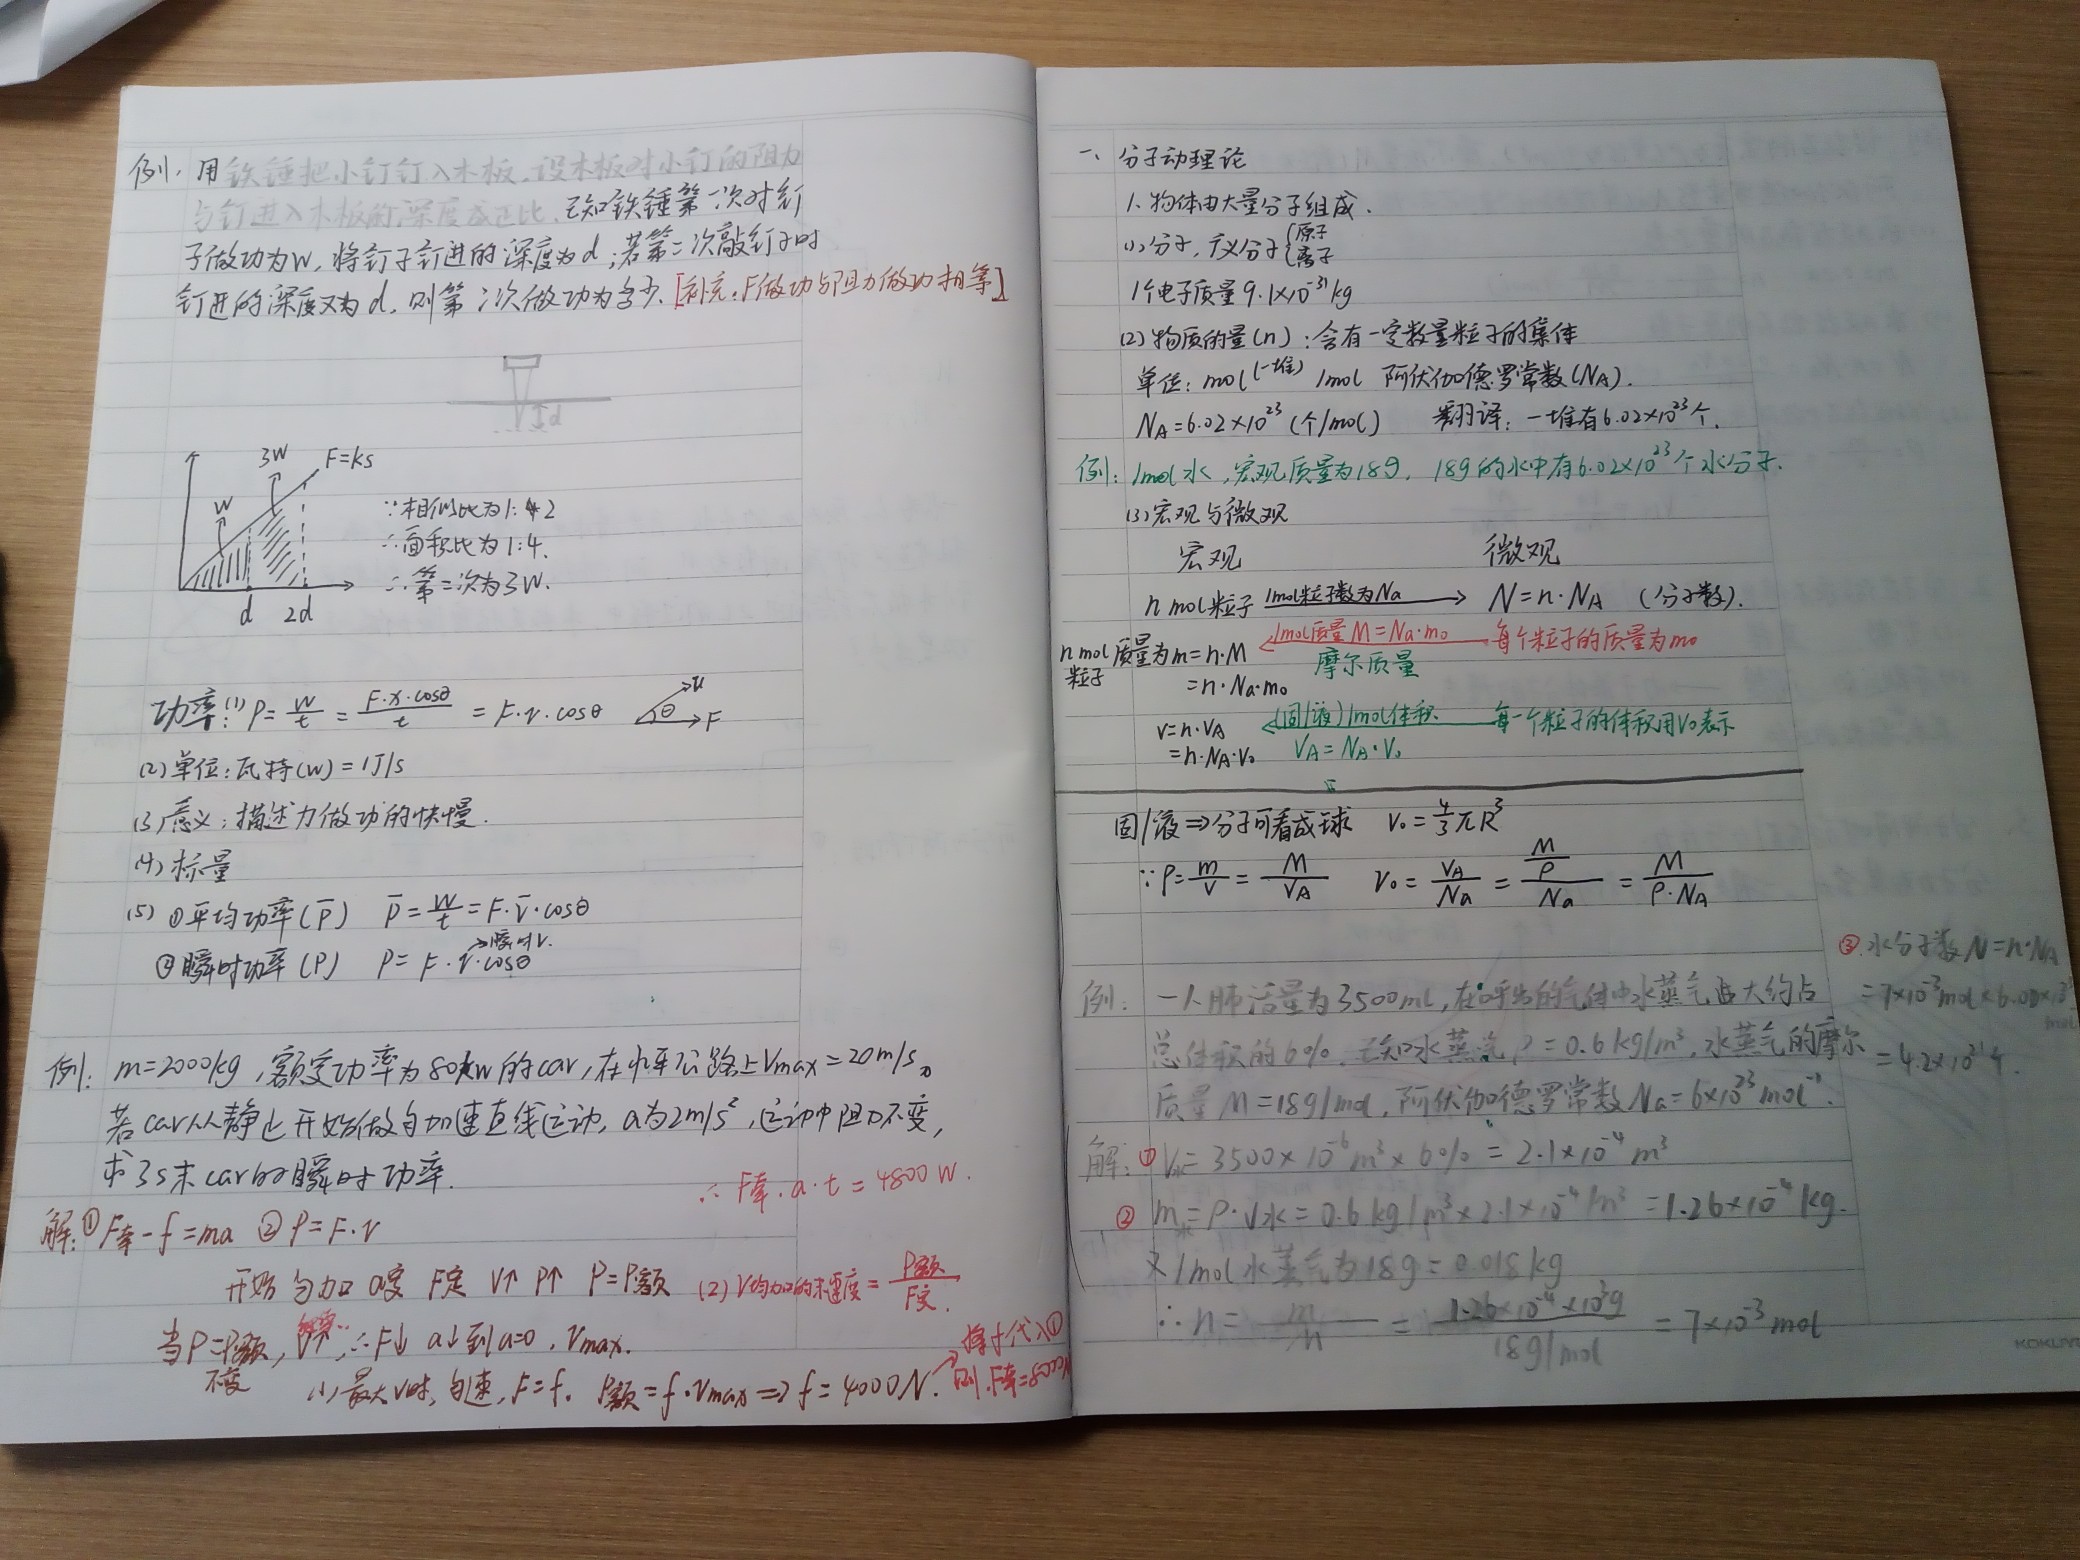 例. 用铁锤把小钉钉入木板,设木板对小钉的阻力
与钉进入木板的深度成正比.已知铁锤第一次对钉
子做功为W,将钉子钉进的深度为d,若第二次敲钉子时
钉进的深度又为d,则第二次做功为多少.[补充:F做功与阻力做功相等]
d
3W F=ks
W
d 2d
∵相似比为1:2
∴面积比为1:4.
∴第二次为3W.
功率:(1) P=W/t=F·x·cosθ/t=F·v·cosθ
v
θ
F
(2)单位:瓦特(W)=1J/s
(3)意义:描述力做功的快慢.
(4)标量
(5) ①平均功率(P̄) P̄=W/t=F·v̄·cosθ
→瞬时v.
②瞬时功率(P) P=F·v·cosθ
例: m=2000kg,额定功率为80kW的car,在水平公路上Vmax=20m/s。
若car从静止开始做匀加速直线运动,a为2m/s²,运动中阻力不变,
求3s末car的瞬时功率.
∴F牵·a·t=4800W.
解:①F牵-f=ma ②P=F·v
开始 匀加 a定 F定 V↑ P↑ P=P额
(2) V匀加的末速度=P额/F定.
当P=P额, V↑,∴F↓ a↓到a=0,Vmax.
不变
(1)最大V时,匀速,F=f. P额=f·Vmax⇒f=4000N.
→将f代入①
则F牵=8000N
一、分子动理论
1、物体由大量分子组成.
(1)分子,广义分子{原子
离子
1个电子质量9.1×10⁻³¹kg
(2)物质的量(n):含有一定数量粒子的集体
单位:mol(一堆) 1mol 阿伏伽德罗常数(NA).
NA=6.02×10²³(个/mol) 翻译:一堆有6.02×10²³个.
例:1mol水,宏观质量为18g,18g的水中有6.02×10²³个水分子.
(3)宏观与微观
宏观 微观
n mol粒子 1mol粒子数为Na → N=n·NA (分子数).
n mol粒子 质量为m=n·M ← 1mol质量M=Na·m₀ 每个粒子的质量为m₀
=n·Na·m₀ 摩尔质量
v=n·VA ← (固/液)1mol体积 每一个粒子的体积用V₀表示
=n·NA·V₀ VA=NA·V₀
固/液⇒分子可看成球 V₀=4/3πR³
∵ρ=m/V=M/VA V₀=VA/Na=(M/ρ)/Na=M/(ρ·NA)
例: 一人肺活量为3500ml,在呼出的气体中水蒸气占大约占
总体积的6%,已知水蒸汽ρ=0.6kg/m³,水蒸气的摩尔
质量M=18g/mol,阿伏伽德罗常数Na=6×10²³mol⁻¹.
解:①V水=3500×10⁻⁶m³×6%=2.1×10⁻⁴m³
②m水=ρ·V水=0.6kg/m³×2.1×10⁻⁴m³=1.26×10⁻⁴kg.
又1mol水蒸气为18g=0.018kg
∴n=m/n=1.26×10⁻⁴×10³g/18g/mol=7×10⁻³mol
③水分子数N=n·NA
=7×10⁻³mol×
=4.2×10²¹个.
KOKUYO